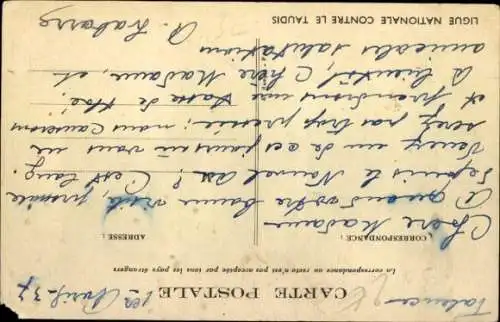 CARTE POSTALE
La correspondance au recto n'est pas acceptée par tous les pays étrangers
CORRESPONDANCE :
ADRESSE :
Talence 1er Avril 37
Chère Madame
A quand votre bonne visite, promise
depuis le Nouvel An ? C'est long.
Venez un de ces jours où vous ne
serez pas trop pressée ; nous causerons
et prendrons une tasse de thé.
A bientôt, Chère Madame, et
amicales salutations
LIGUE NATIONALE CONTRE LE TAUDIS